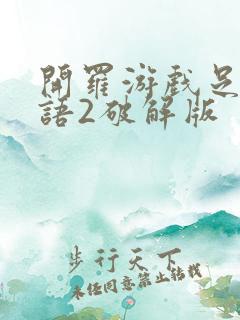 開羅游戲足
語2破解版
步行天下
未經同意禁止轉載